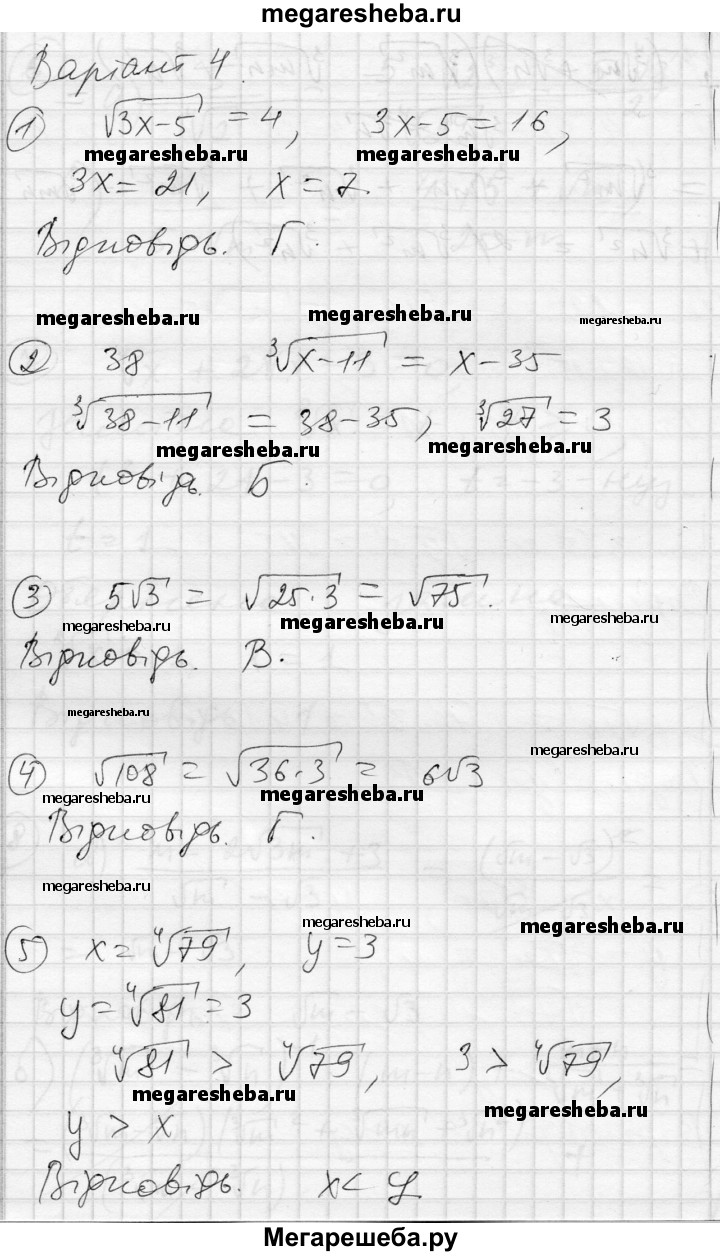 megaresheba.ru
Варіант 4.
① √(3x-5) = 4, 3x-5 = 16,
megaresheba.ru megaresheba.ru
3x = 21, x = 7.
Відповідь. Г.
megaresheba.ru megaresheba.ru megaresheba.ru
② 38 ∛(x-11) = x-35
∛(38-11) = 38-35, ∛27 = 3
megaresheba.ru megaresheba.ru
Відповідь. Б
③ 5√3 = √(25·3) = √75.
megaresheba.ru megaresheba.ru megaresheba.ru
Відповідь. В.
megaresheba.ru
megaresheba.ru
④ √108 = √(36·3) = 6√3
megaresheba.ru megaresheba.ru
Відповідь. Г.
megaresheba.ru
megaresheba.ru
⑤ x = ∜79, y = 3
megaresheba.ru megaresheba.ru
y = ∜81 = 3
∜81 > ∜79, 3 > ∜79,
megaresheba.ru megaresheba.ru
y > x
Відповідь. x < y.
Мегарешеба.ру